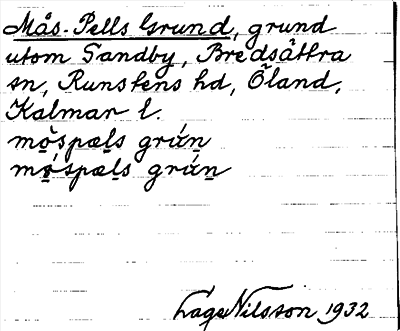 Mås-Pells Grund, grund
utom Sandby, Bredsättra
sn, Runstens hd, Öland,
Kalmar l.
mǫ̀spæl̠s grún̠
mǫ́spæl̠s grún̠
Lage Nilsson 1932